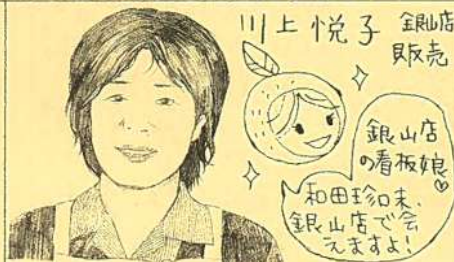 川上悦子 銀山店
販売
銀山店
の看板娘♡
和田珍味、
銀山店で会
えますよ!